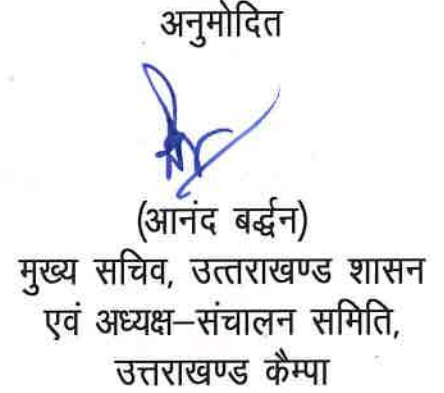 अनुमोदित
(आनंद बर्द्धन)
मुख्य सचिव, उत्तराखण्ड शासन
एवं अध्यक्ष–संचालन समिति,
उत्तराखण्ड कैम्पा